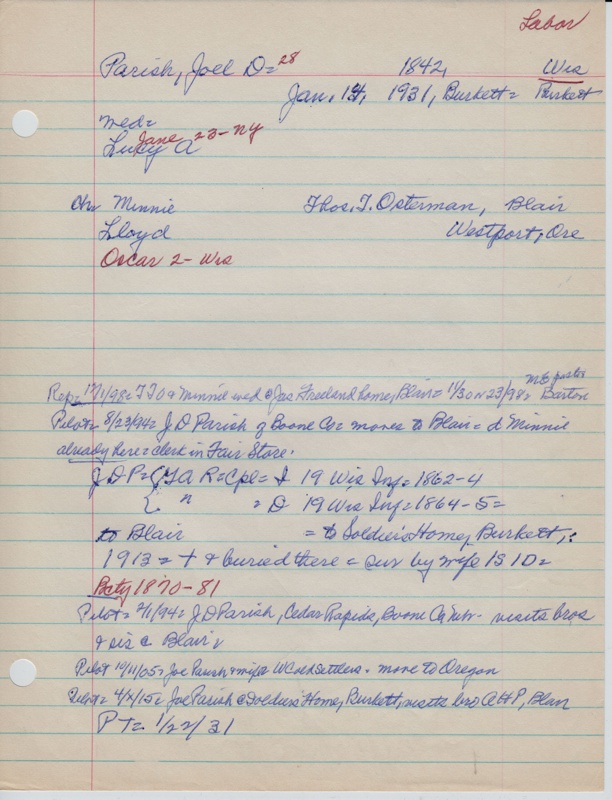 Labor
Parish, Joel D= 28 1842, Wis
Jan. 14, 1931, Burkett= Burkett
med=
Lucy Jane A 23-NY
Ch Minnie Thos. T. Osterman, Blair
Lloyd Westport, Ore
Oscar 2- Wis
Rep= 12/1/98= TTO & Minnie wed @ Jas Freeland home, Blair= 11/30 or 23/98= ME pastor Barton
Pilot= 8/23/94= J D Parish of Boone Co= moves to Blair= d Minnie
already here= clerk in Fair Store.
J D P= GAR= Cpl= I 19 Wis Inf= 1862-4
" = D 19 Wis Inf= 1864-5=
to Blair = to Soldiers Home, Burkett,:
1913= + & buried there= sur by wife 1S 1D=
Bcty 1870-81
Pilot= 2/1/94= J D Parish, Cedar Rapids, Boone Co Nebr- visits bros
& sis @ Blair=
Pilot 10/11/05= Joe Parish & wife W C old Settlers. move to Oregon
Pilot= 4/X/15= Joe Parish @ Soldiers Home, Burkett, visits bro A H P, Blair
P T= 1/22/31